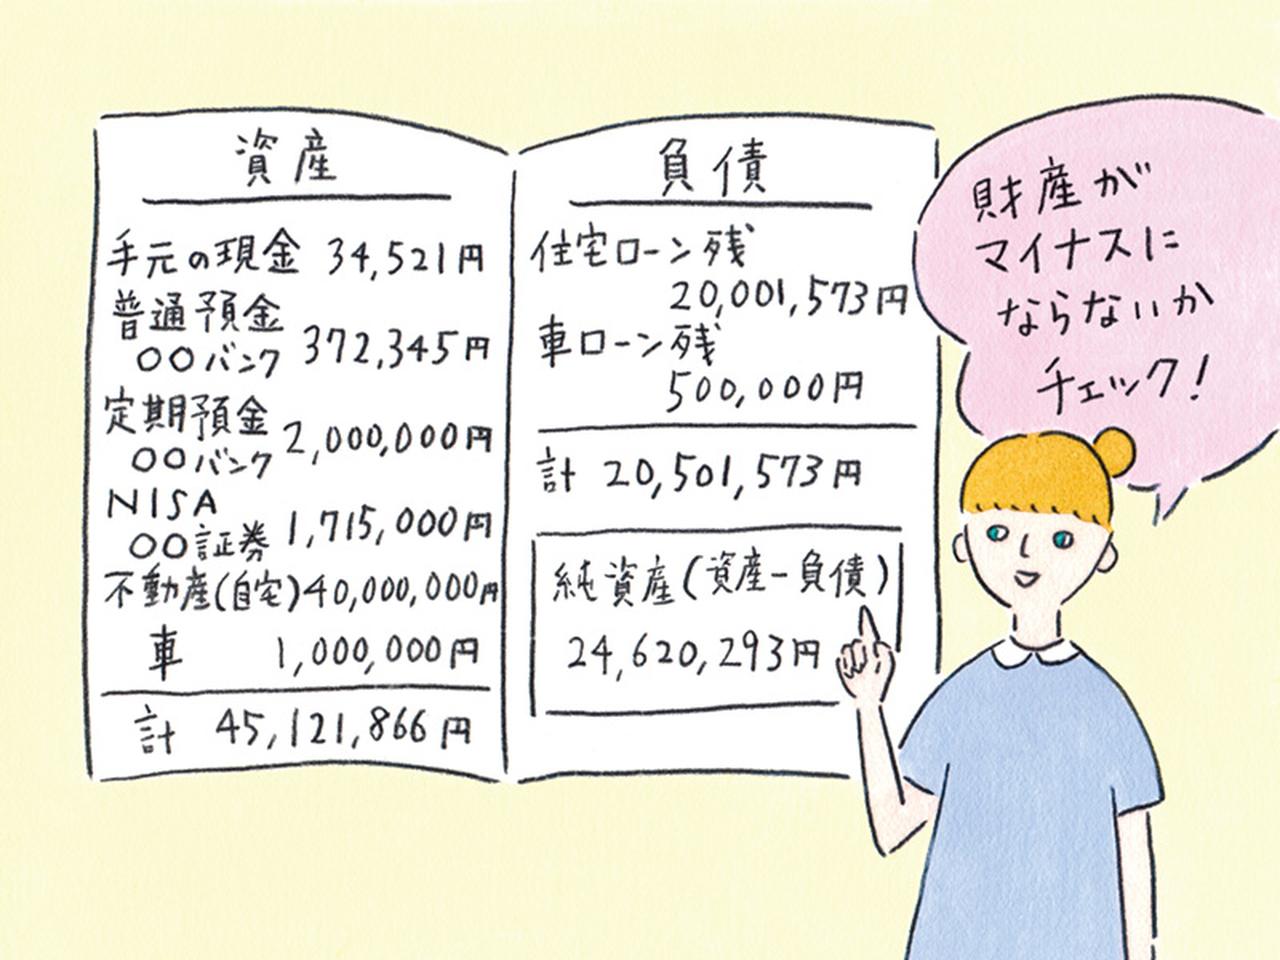 資産
手元の現金 34,521円
普通預金
○○バンク 372,345円
定期預金
○○バンク 2,000,000円
NISA
○○証券 1,715,000円
不動産(自宅)40,000,000円
車 1,000,000円
計 45,121,866円
負債
住宅ローン残
20,001,573円
車ローン残
500,000円
計 20,501,573円
純資産(資産-負債)
24,620,293円
財産が
マイナスに
ならないか
チェック!